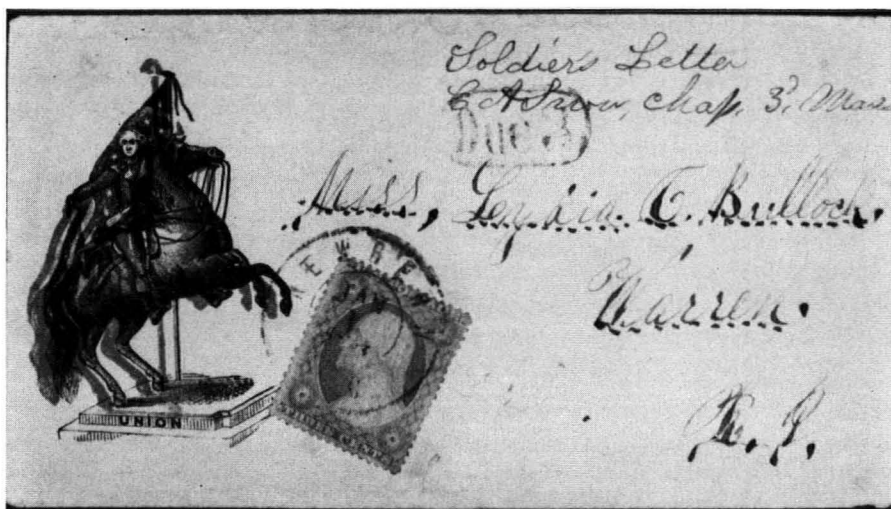 Soldiers Letter
C A Snow, Chap. 3d, Mass
Due 3
Miss, Lydia. C. Bullock.
Warren.
R. I.
NEW BE
JAN
UNION